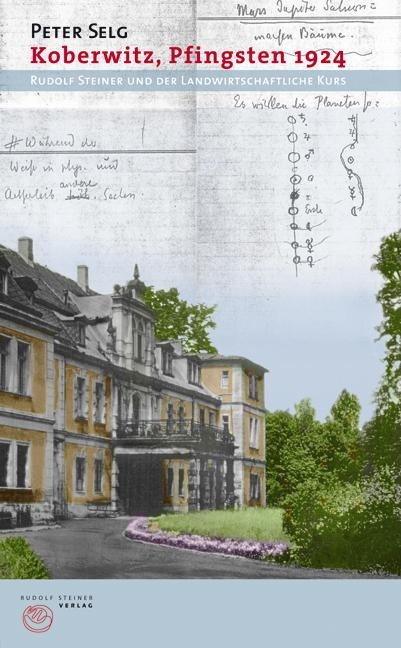 Mars Jupiter Saturn =
machen Bäume.
PETER SELG
Koberwitz, Pfingsten 1924
RUDOLF STEINER UND DER LANDWIRTSCHAFTLICHE KURS
Es wirken die Planeten so:
# Während das
Weiß in phys. und
andere
Ätherleib Sachen.
♄
♃
♂
☉
Erde
RUDOLF STEINER
VERLAG